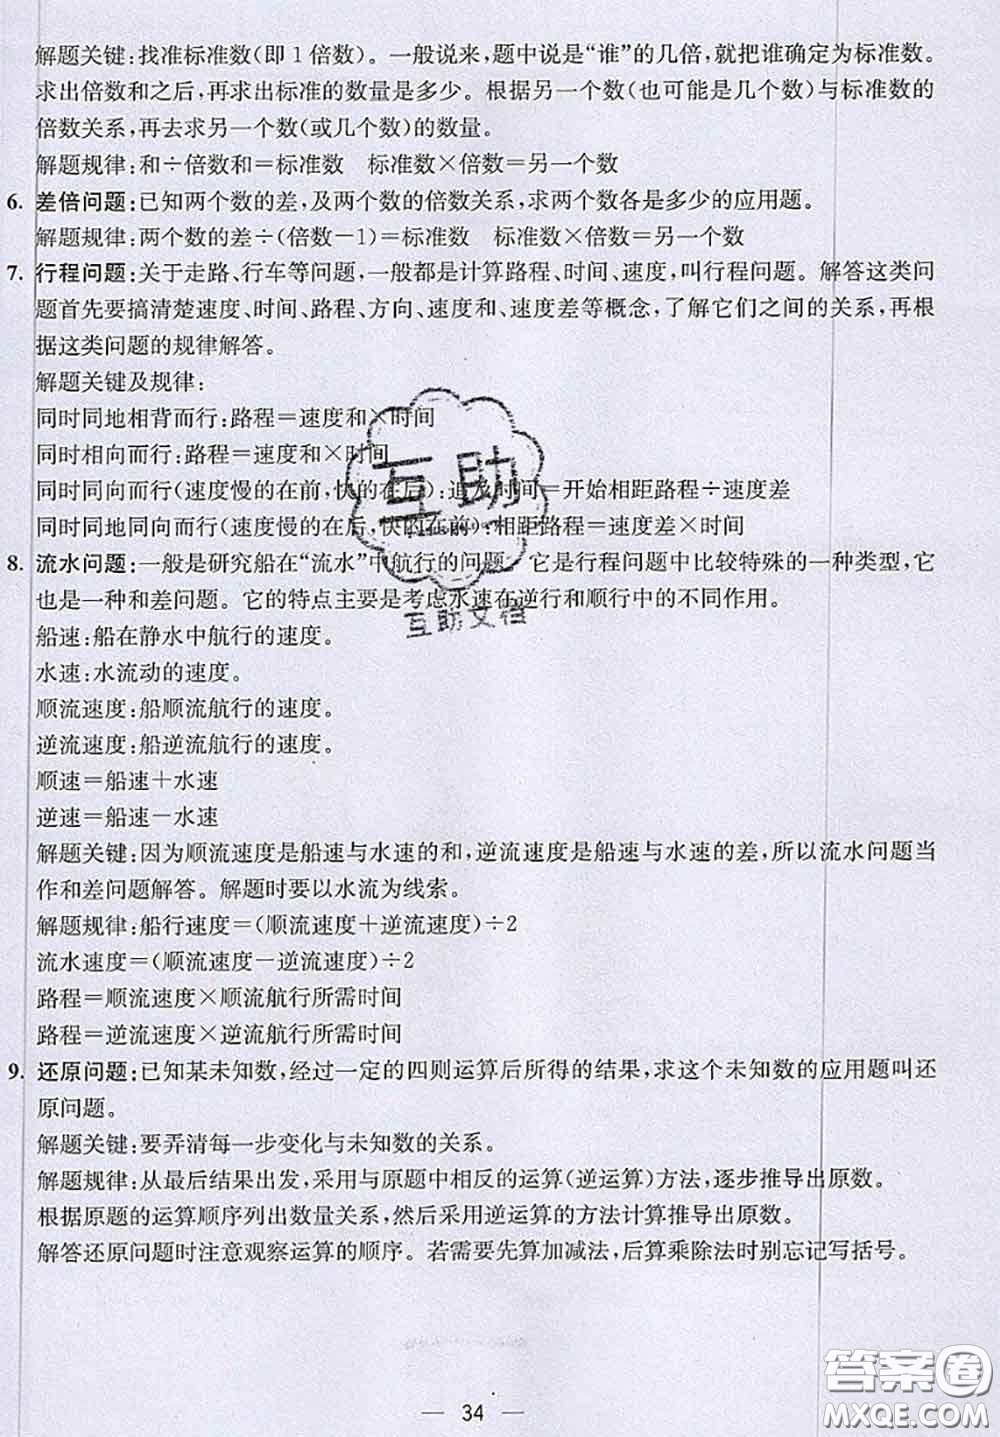 解题关键:找准标准数(即1倍数)。一般说来,题中说是“谁”的几倍,就把谁确定为标准数。
求出倍数和之后,再求出标准的数量是多少。根据另一个数(也可能是几个数)与标准数的
倍数关系,再去求另一个数(或几个数)的数量。
解题规律:和÷倍数和=标准数 标准数×倍数=另一个数
6. 差倍问题:已知两个数的差,及两个数的倍数关系,求两个数各是多少的应用题。
解题规律:两个数的差÷(倍数-1)=标准数 标准数×倍数=另一个数
7. 行程问题:关于走路、行车等问题,一般都是计算路程、时间、速度,叫行程问题。解答这类问
题首先要搞清楚速度、时间、路程、方向、速度和、速度差等概念,了解它们之间的关系,再根
据这类问题的规律解答。
解题关键及规律:
同时同地相背而行:路程=速度和×时间
同时相向而行:路程=速度和×时间
同时同向而行(速度慢的在前,快的在后):追及时间=开始相距路程÷速度差
同时同地同向而行(速度慢的在后,快的在前):相距路程=速度差×时间
8. 流水问题:一般是研究船在“流水”中航行的问题。它是行程问题中比较特殊的一种类型,它
也是一种和差问题。它的特点主要是考虑水速在逆行和顺行中的不同作用。
船速:船在静水中航行的速度。
水速:水流动的速度。
顺流速度:船顺流航行的速度。
逆流速度:船逆流航行的速度。
顺速=船速+水速
逆速=船速-水速
解题关键:因为顺流速度是船速与水速的和,逆流速度是船速与水速的差,所以流水问题当
作和差问题解答。解题时要以水流为线索。
解题规律:船行速度=(顺流速度+逆流速度)÷2
流水速度=(顺流速度-逆流速度)÷2
路程=顺流速度×顺流航行所需时间
路程=逆流速度×逆流航行所需时间
9. 还原问题:已知某未知数,经过一定的四则运算后所得的结果,求这个未知数的应用题叫还
原问题。
解题关键:要弄清每一步变化与未知数的关系。
解题规律:从最后结果出发,采用与原题中相反的运算(逆运算)方法,逐步推导出原数。
根据原题的运算顺序列出数量关系,然后采用逆运算的方法计算推导出原数。
解答还原问题时注意观察运算的顺序。若需要先算加减法,后算乘除法时别忘记写括号。
互助
互助文档
— 34 —
答案圈
MXQE.COM